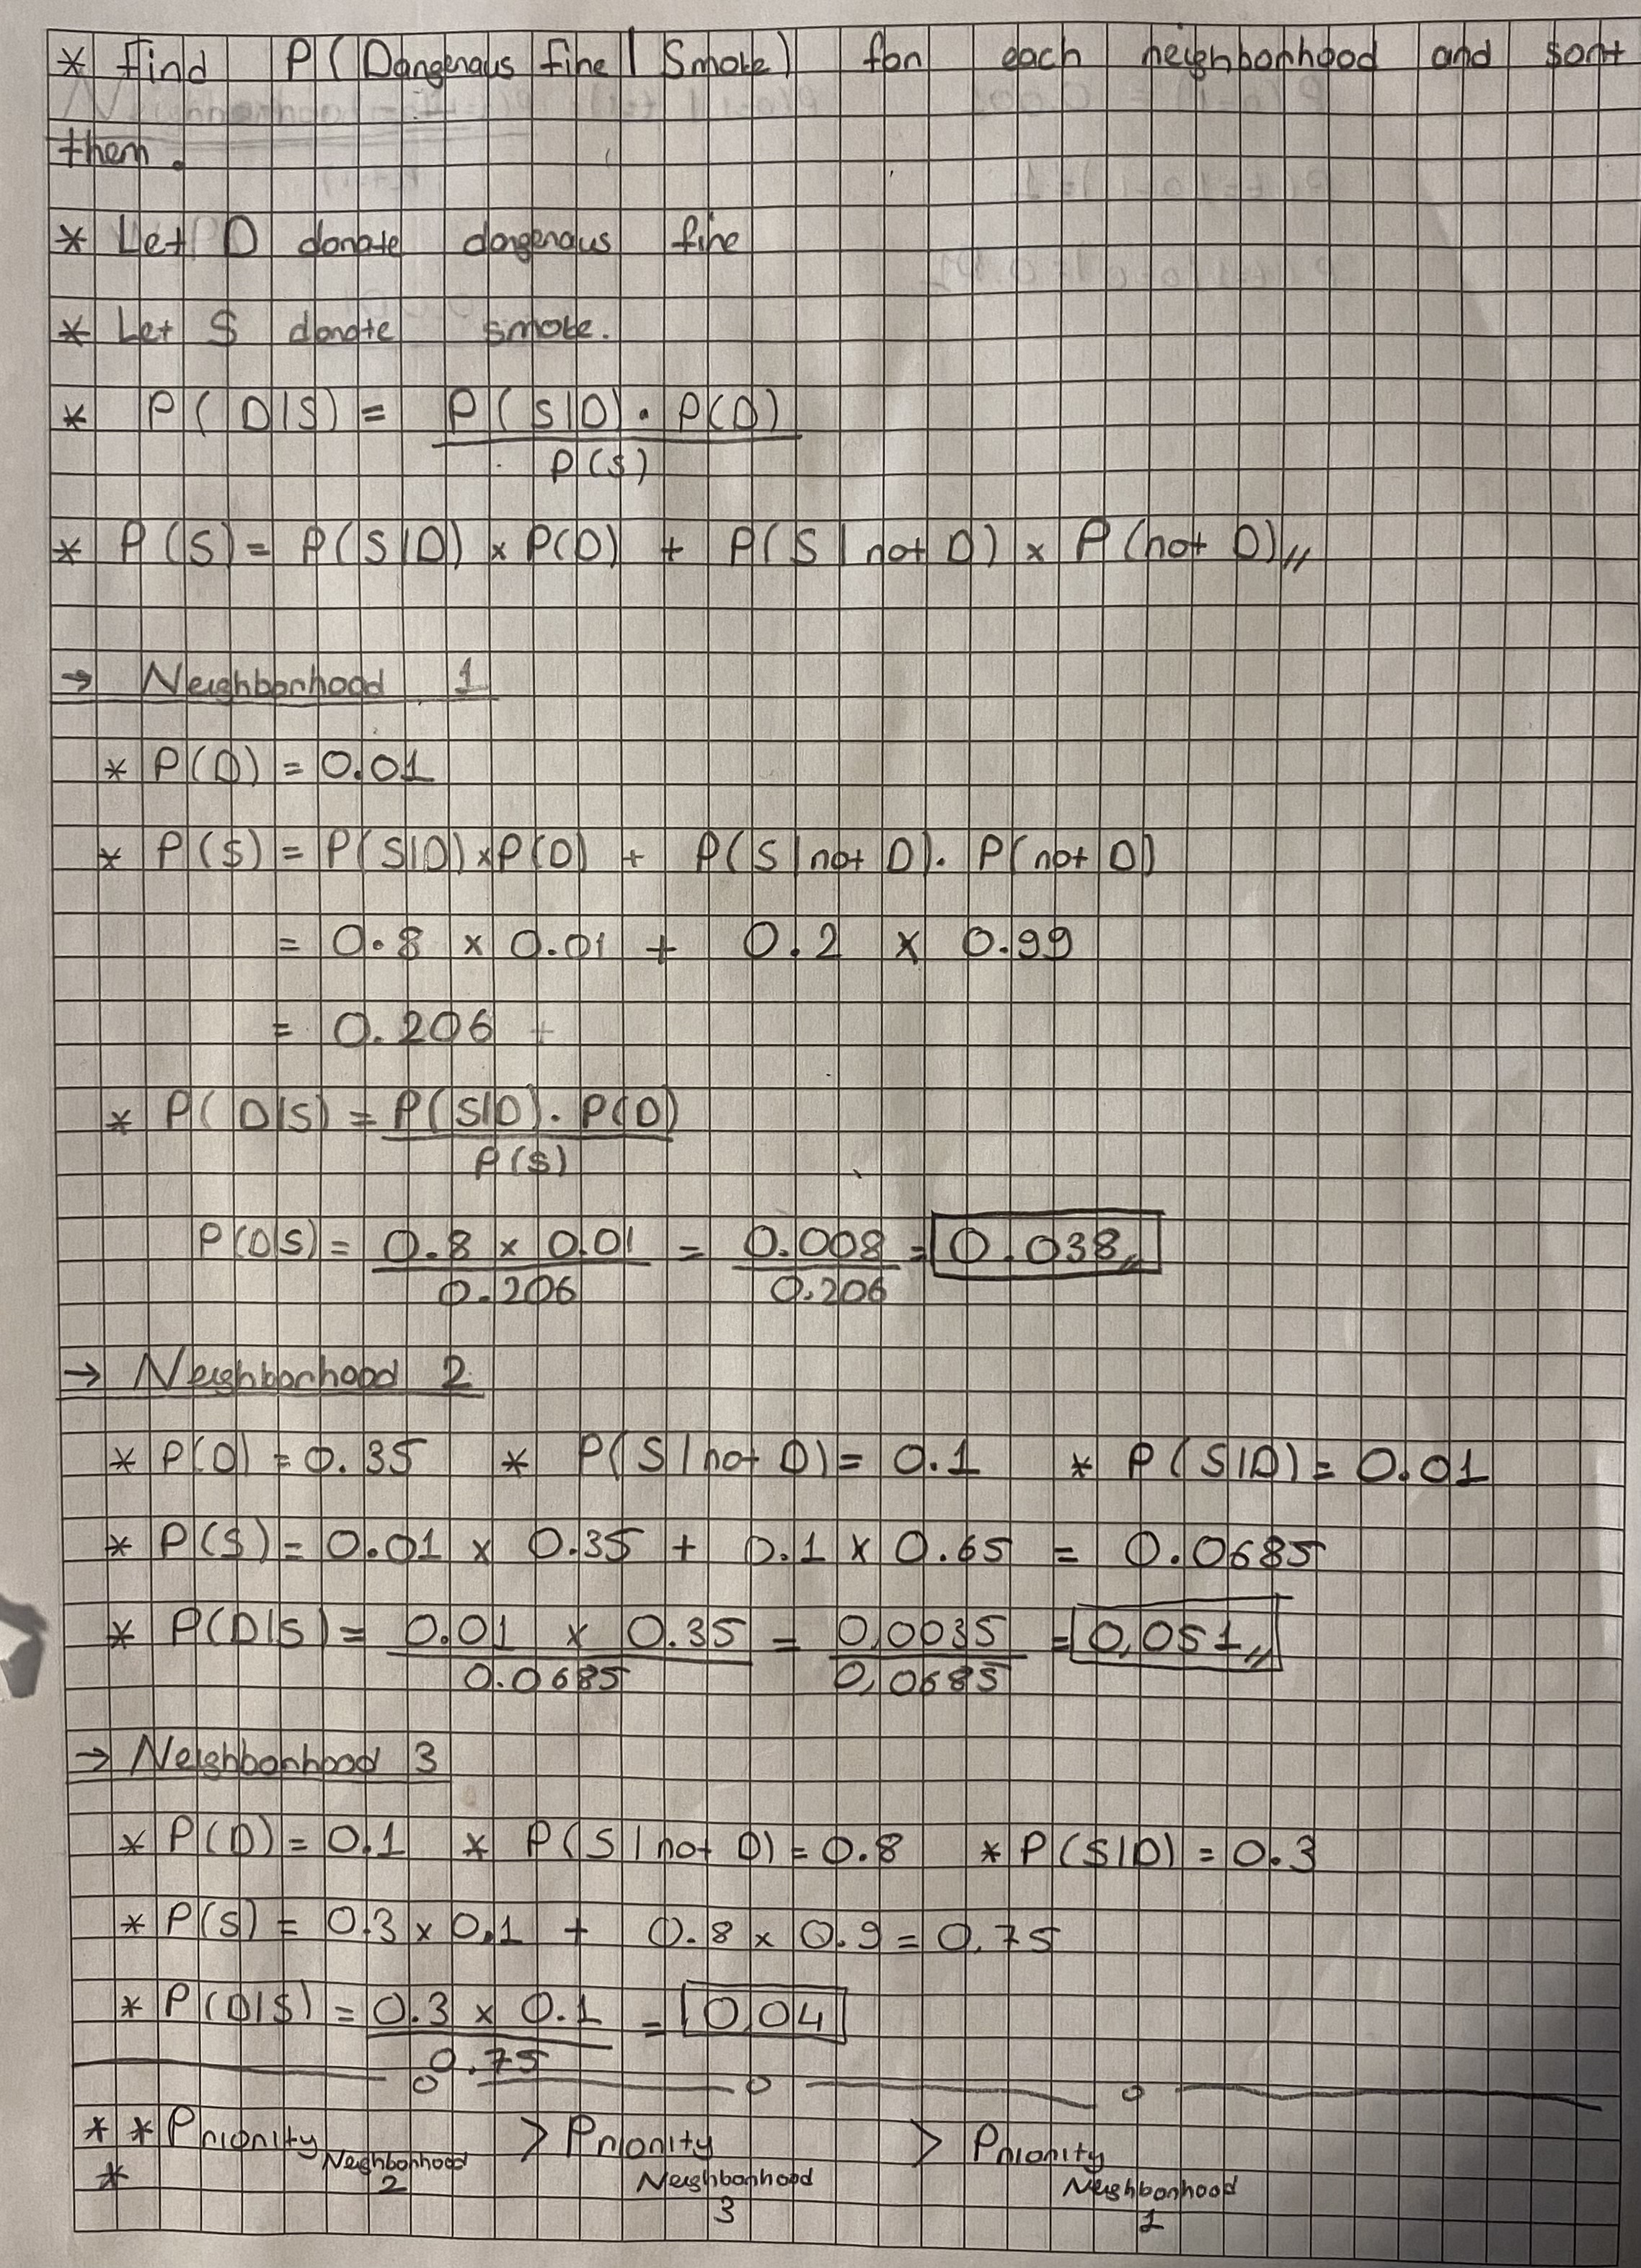 * Find P(Dangerous fire | Smoke) for each neighborhood and sort
them.
* Let D donate dangerous fire
* Let S donate smoke.
* P(D|S) = P(S|D) . P(D)
P(S)
* P(S) = P(S|D) x P(D) + P(S | not D) x P(not D)//
→ Neighborhood 1
* P(D) = 0.01
* P(S) = P(S|D) x P(D) + P(S | not D) . P(not D)
= 0.8 x 0.01 + 0.2 x 0.99
= 0.206
* P(D|S) = P(S|D) . P(D)
P(S)
P(D|S) = 0.8 x 0.01 = 0.008 = 0.038//
0.206 0.206
→ Neighborhood 2
* P(D) = 0.35 * P(S | not D) = 0.1 * P(S|D) = 0.01
* P(S) = 0.01 x 0.35 + 0.1 x 0.65 = 0.0685
* P(D|S) = 0.01 x 0.35 = 0,0035 = 0,051//
0.0685 0,0685
→ Neighborhood 3
* P(D) = 0.1 * P(S | not D) = 0.8 * P(S|D) = 0.3
* P(S) = 0.3 x 0.1 + 0.8 x 0.9 = 0.75
* P(D|S) = 0.3 x 0.1 = 0,04
0.75
* * Priority Neighborhood 2 > Priority Neighborhood 3 > Priority Neighborhood 1
*